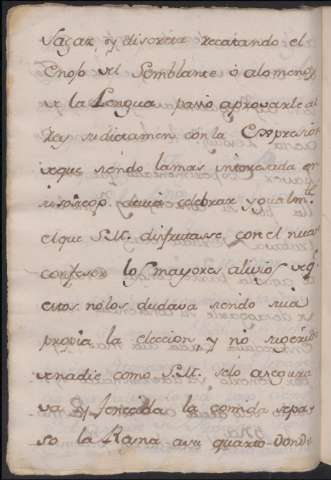 sagaz y discreta recatando el
Enojo del Semblante ò alomenos
de la Lengua pasó aprovarle al
Rey su dictamen con la Expresion
deque siendo la mas interesada en
su devia celebrar igualm.te
el que S.M. disfrutasse con el nuevo
confesor los mayores alivios deq.e
estos no los dudava siendo suia
propia la eleccion y no sugerida
de nadie como S.M. se lo asegura
va Y fenecida la comida se pa
só la Reyna a su quarto donde